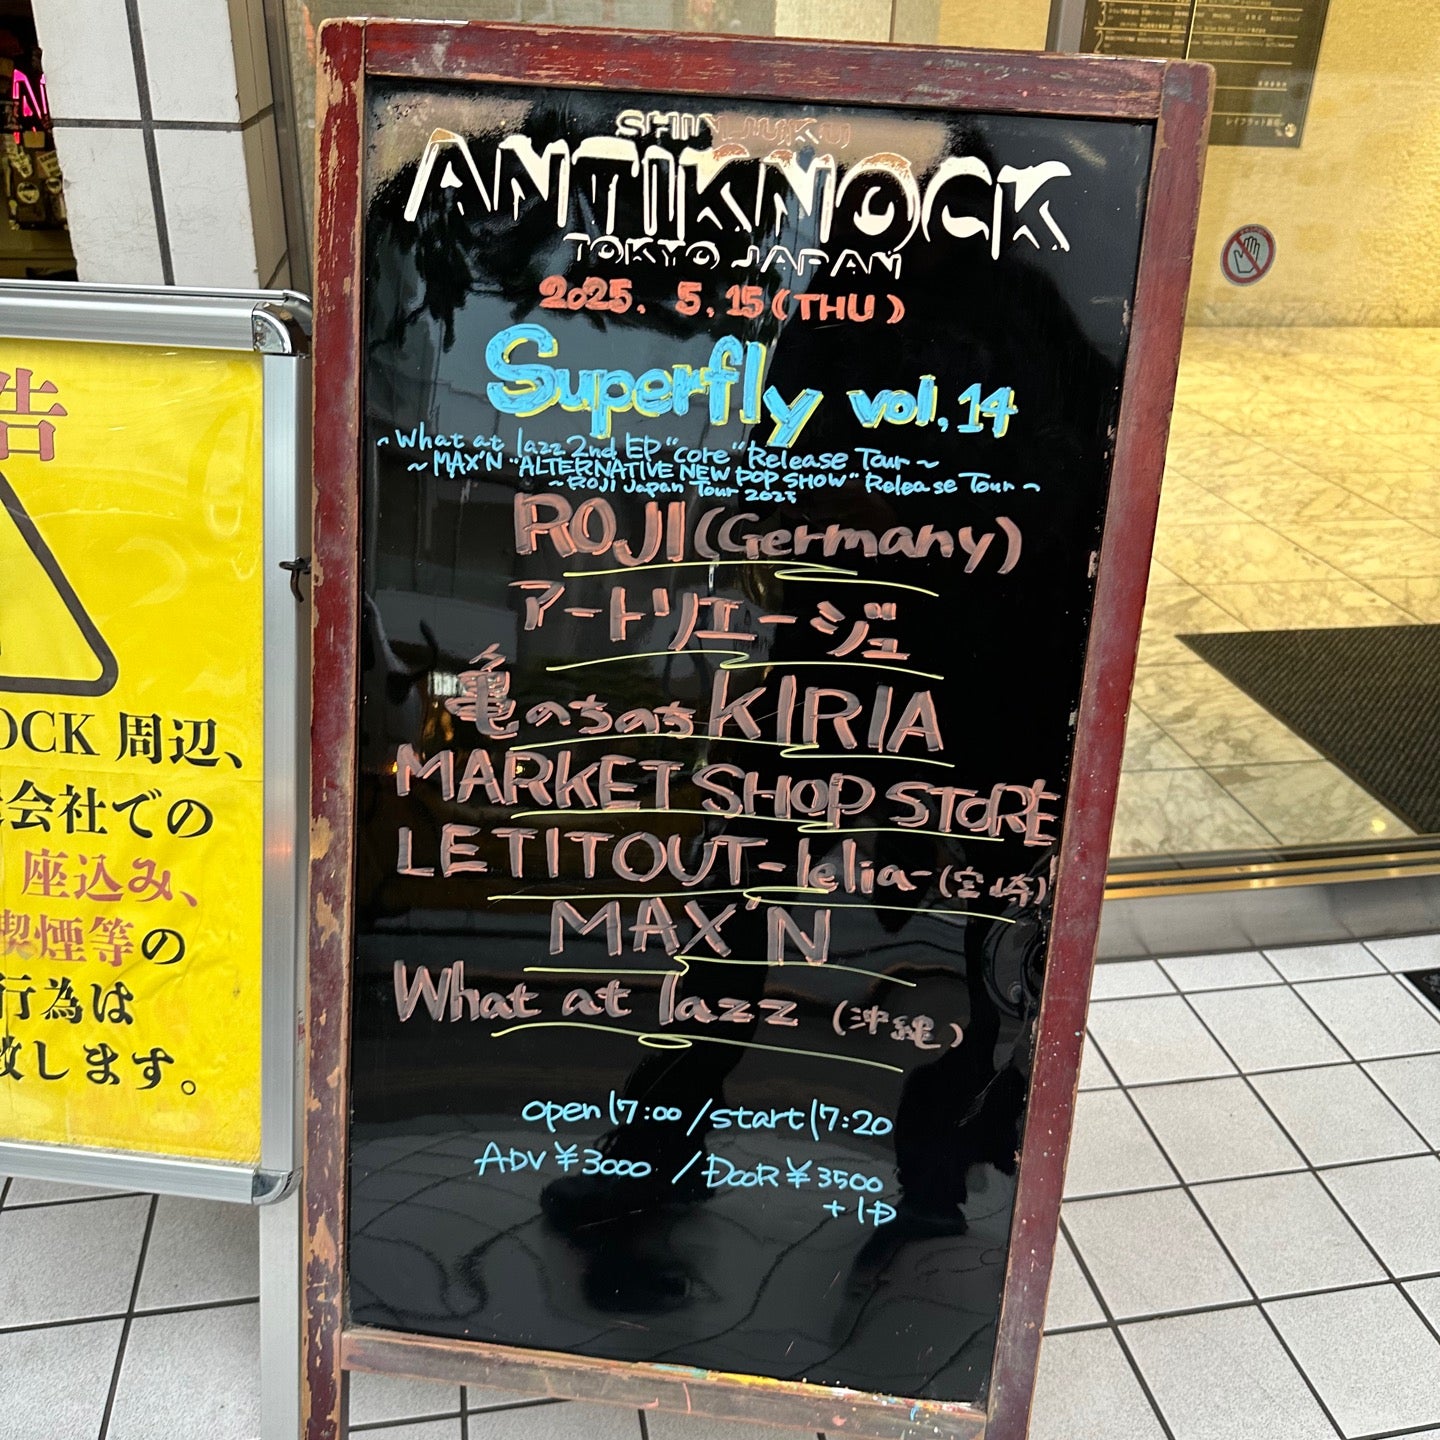 SHINJUKU
ANTIKNOCK
TOKYO JAPAN
2025. 5.15(THU)
Superfly vol.14
~What at lazz 2nd EP "core" Release Tour~
~MAX'N "ALTERNATIVE NEW POP SHOW" Release Tour~
~ROJI Japan Tour 2025
ROJI(Germany)
アートリエージュ
亀のちのちKIRIA
MARKET SHOP STORE
LETITOUT-lelia-(宮崎)
MAX'N
What at lazz (沖縄)
open17:00/start17:20
ADV¥3000 /DOOR¥3500
+1D
告
OCK 周辺、
会社での
座込み、
喫煙等の
行為は
致します。